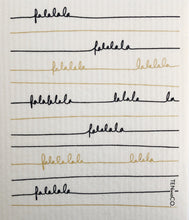 falalala
falalala
falalala lalalala
falalalala lalala la
falalala
falalala lalala
falalala
TEN and CO.